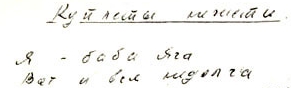 Куплеты нечисти.
Я - баба Яга
Вот и вся недолга